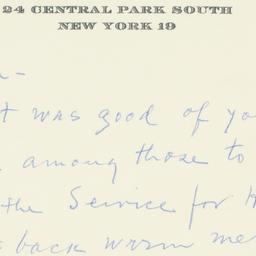 24 CENTRAL PARK SOUTH
NEW YORK 19
t was good of yo
among those to
the Service for H
back warm me